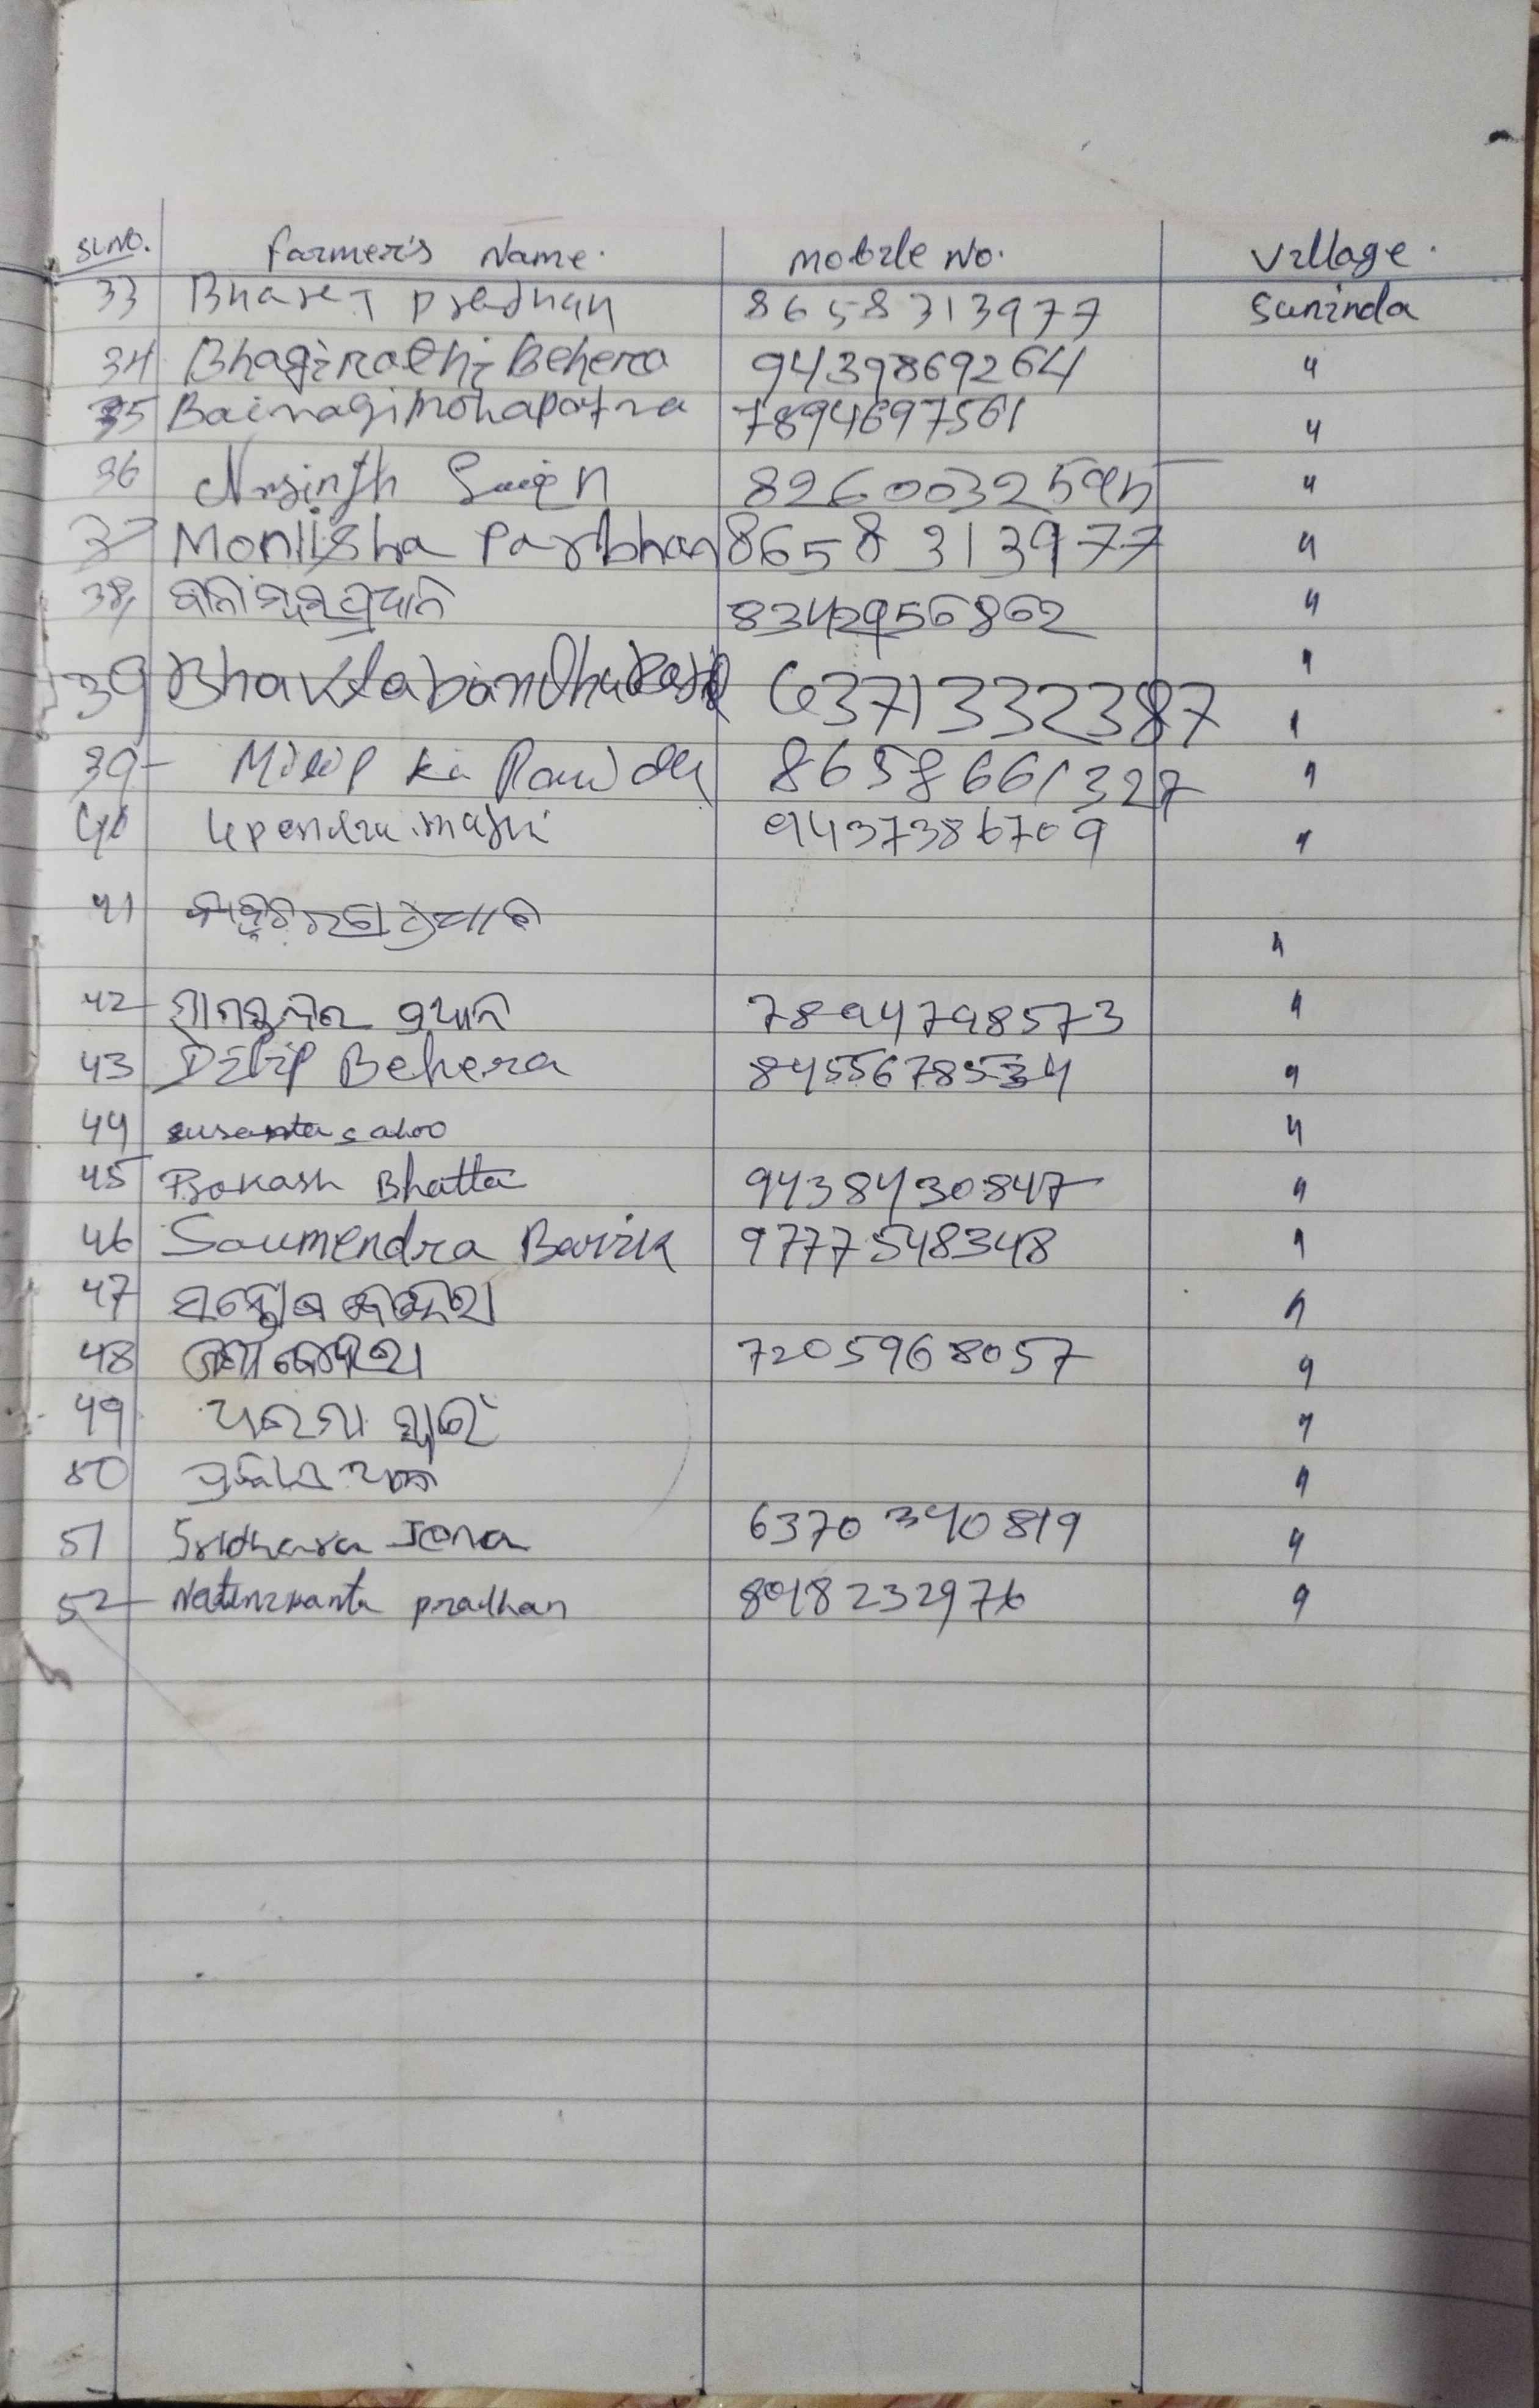 Sl.No. Farmer's Name. Mobile No. Village.
33 Bharat Pradhan 8658313977 Suninda
34 Bhagirathi Behera 9439869264 "
35 Bairagi Mohapatra 7894697561 "
36 Nrsingh Swain 8260032595 "
37 Monlisha Pardhan 8658313977 "
38 8342956862 "
39 Bhaktabandhu 6371332387 "
39 8658661327 "
40 Upendra majhi 9437386709 "
41 "
42 ଶ୍ୟାମସୁନ୍ଦର ପ୍ରଧାନ 7894798573 "
43 Dilip Behera 8455678534 "
44 susanta sahoo "
45 Prakash Bhatta 9438430847 "
46 Soumendra Barik 9777548348 "
47 ସନ୍ତୋଷ ବେହେରା "
48 ବେହେରା 7205968057 "
49 "
50 "
51 Sridhara Jena 6370340819 "
52 pradhan 8018232976 "